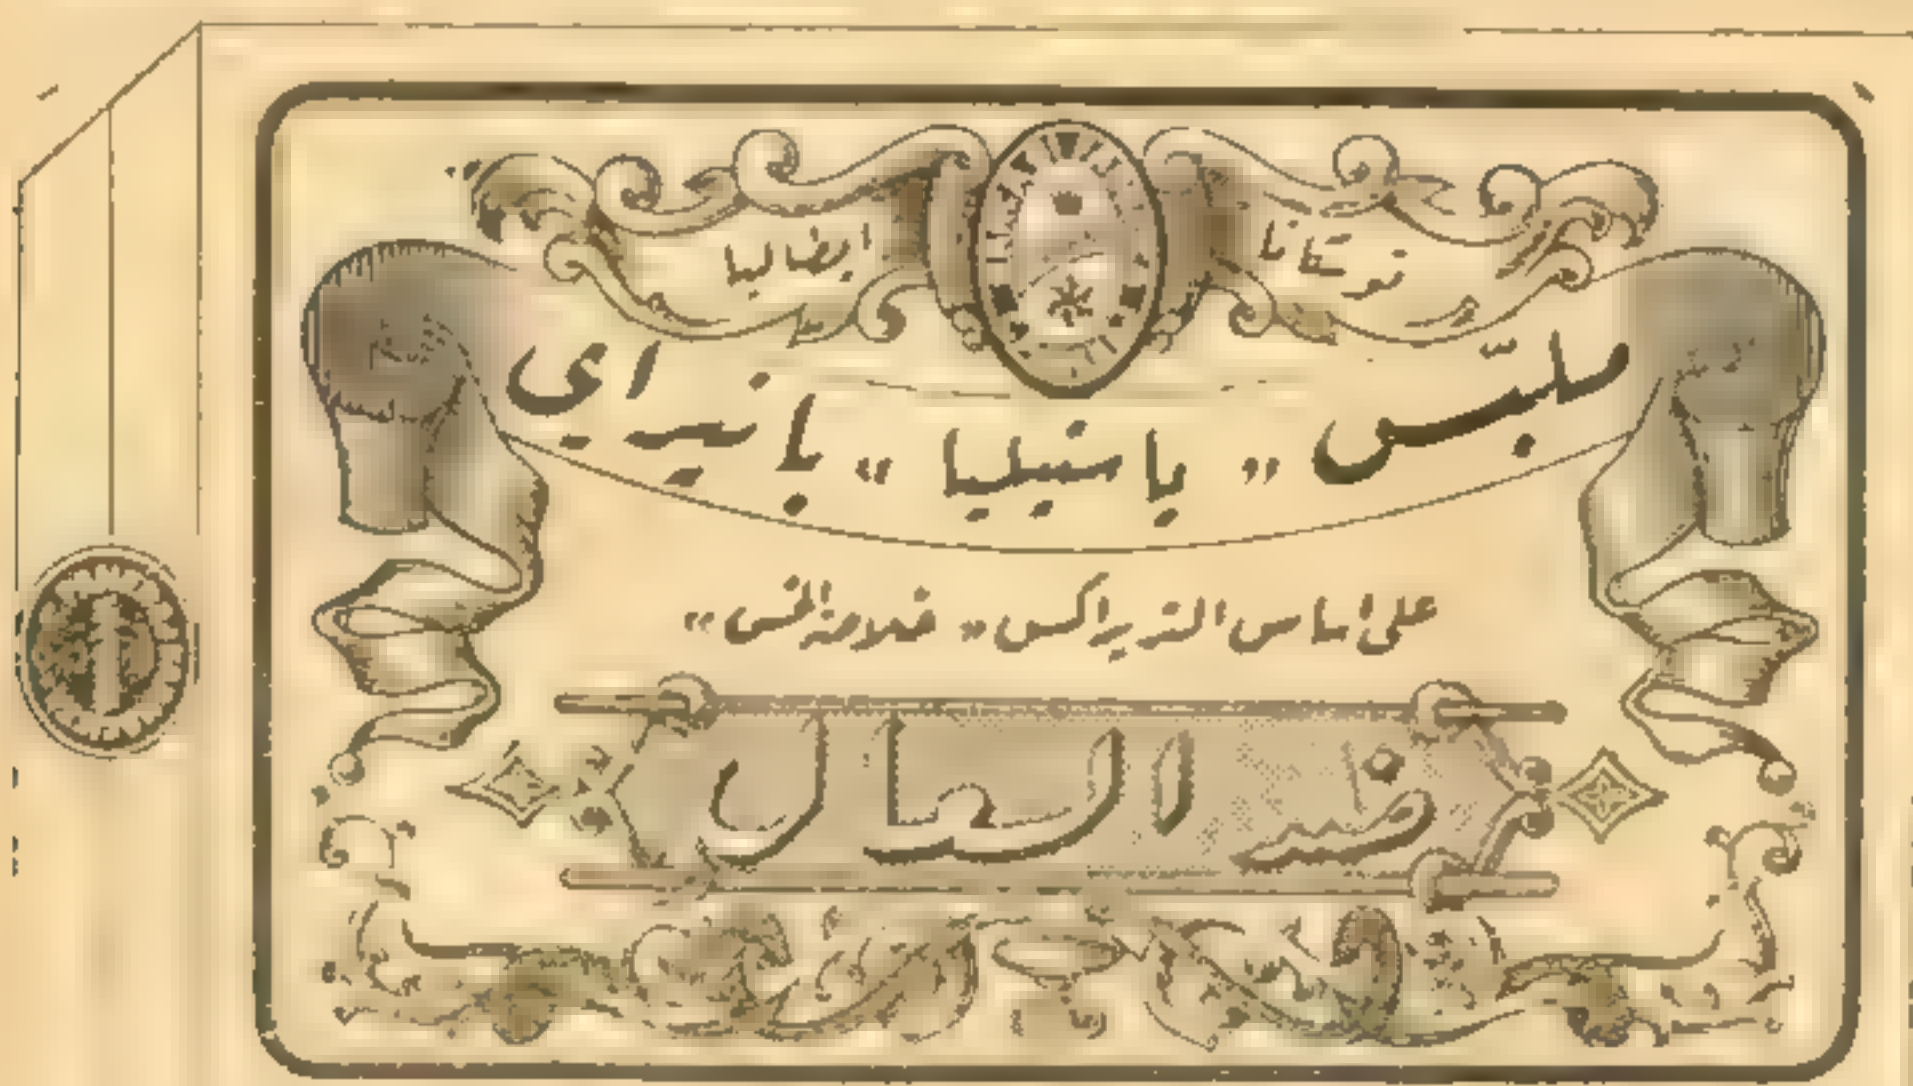 توسكانا ايطاليا
ملبّس « باستيليا » بانيراي
على اساس التريراكس « خلاصة الخس »
ضد السعال